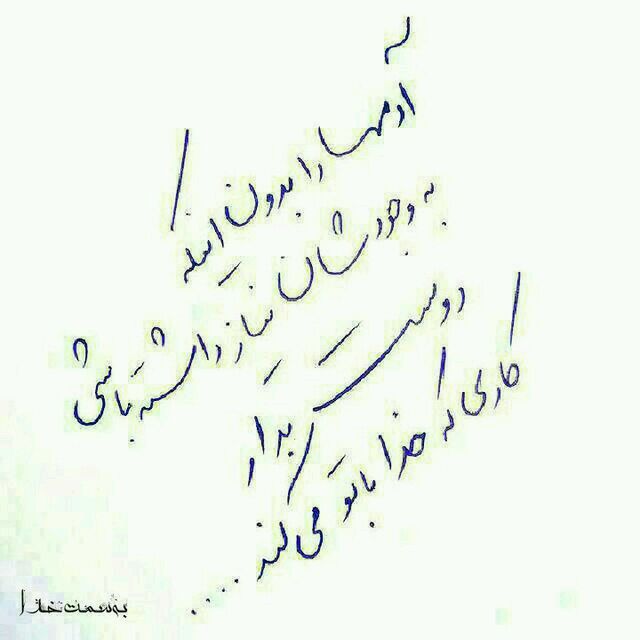 آدمها را بدون اینکه
به وجودشان نیاز داشته باشی
دوست بدار
کاری که خدا با تو می کند ....
به سمت خدا